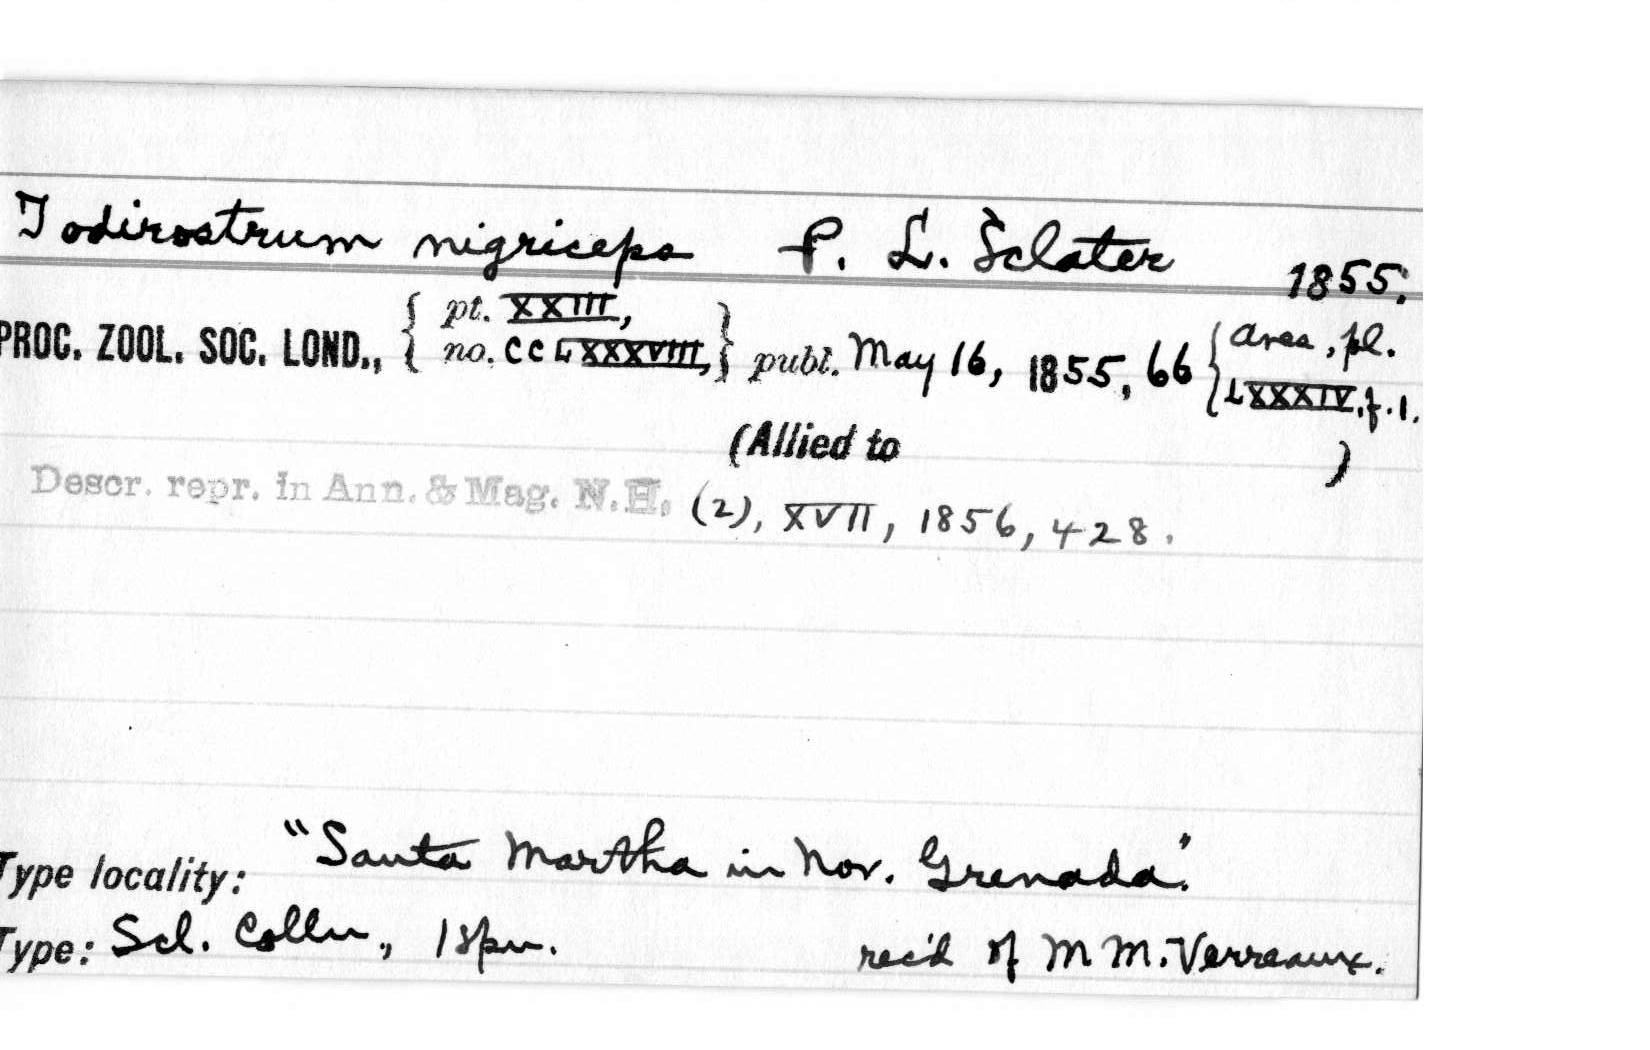 Todirostrum nigriceps P. L. Sclater 1855.
PROC. ZOOL. SOC. LOND., { pt. XXIII, no. CCLXXXVIII, } publ. May 16, 1855, 66 { Aves, pl. LXXXIV, f. 1.
(Allied to )
Descr. repr. in Ann. & Mag. N.H. (2), XVII, 1856, 428.
Type locality: "Santa Martha in Nov. Grenada".
Type: Scl. Colln., 1 spn. rec'd of MM. Verreaux.